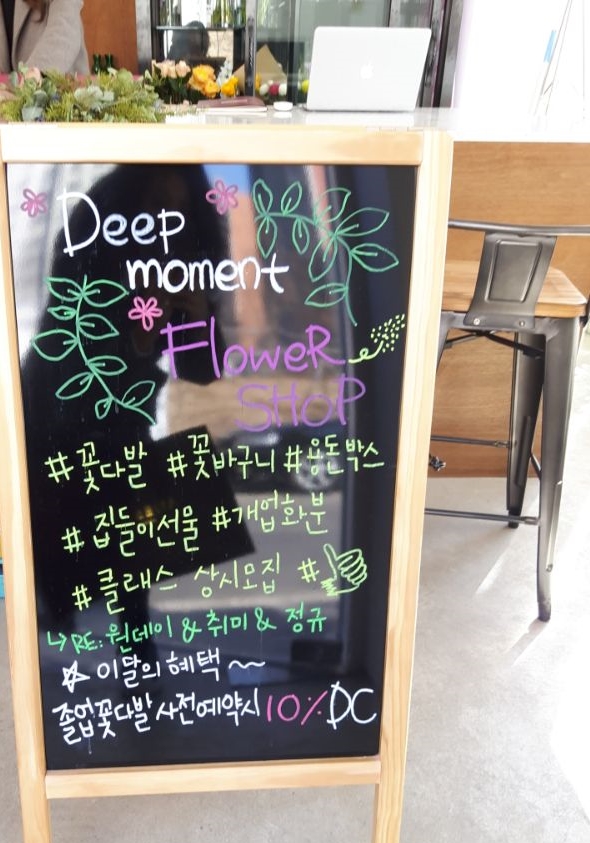 Deep
moment
FloweR
SHOP
#꽃다발 #꽃바구니 #용돈박스
#집들이선물 #개업화분
#클래스 상시모집 #
↳RE: 원데이 & 취미 & 정규
☆ 이달의 혜택 ~
졸업꽃다발 사전예약시 10% DC